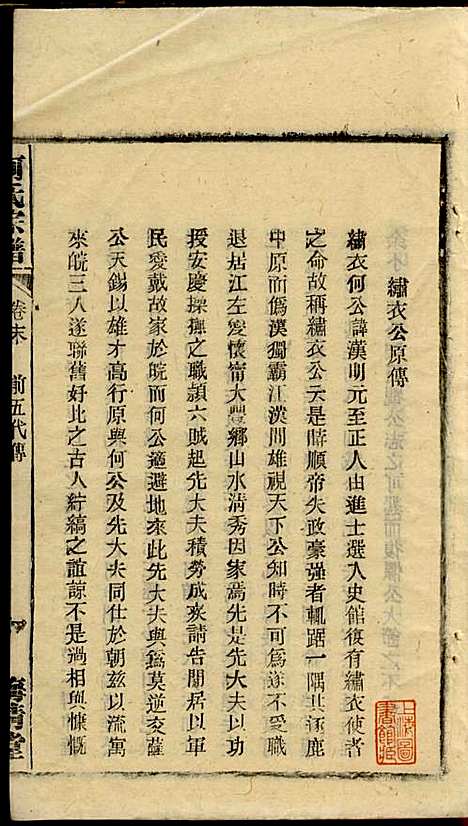 繡衣公原傳
繡衣何公諱漢明元至正人由進士選入史館復有繡衣使者
之命故稱繡衣公云是時順帝失政豪强者輒踞一隅其逐鹿
中原而僞漢獨霸江漢間雄視天下公知時不可爲遂不受職
退居江左愛懷甯大豐鄉山水清秀因家焉先是先大夫以功
授安慶操撫之職頴六賊起先大夫積勞成疾請告閒居以軍
民愛戴故家於皖而何公適避地來此先大夫與爲莫逆交薩
公天錫以雄才高行原與何公及先大夫同仕於朝兹以流寓
來皖三人遂聯舊好比之古人紵縞之誼諒不是過相與慷慨
何氏宗譜
卷末
前五代傳
上海圖
書館藏